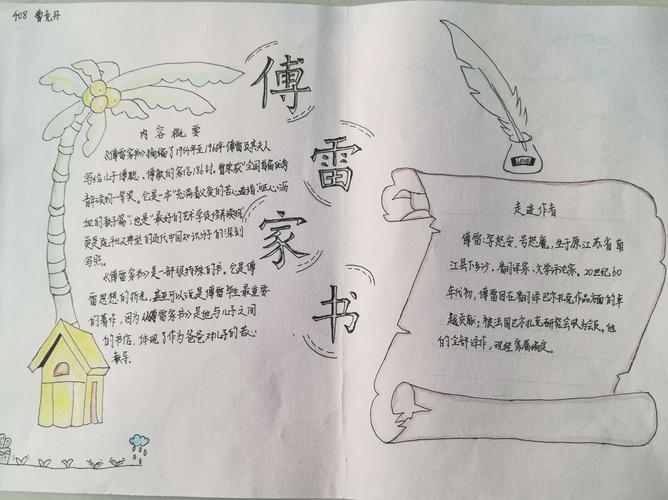 408 曹竞丹
傅
雷
家
书
内容概要
《傅雷家书》摘编了1954年至1966年傅雷及其夫人
写给儿子傅聪、傅敏的家信186封,曾荣获“全国首届优秀
青年读物一等奖”。它是一本“充满着父爱的苦心孤诣、呕心沥
血的教子篇”,也是“最好的艺术学徒修养读物”
更是既平凡又典型的近代中国知识分子的深刻
写照。
《傅雷家书》是一部很特殊的书。它是傅
雷思想的折光,甚至可以说是傅雷毕生最重要
的著作,因为《傅雷家书》是他与儿子之间
的书信,体现了作为爸爸对儿子的苦心
教导。
LOVE
走进作者
傅雷:字怒安,号怒庵,生于原江苏省南
江县下沙乡,翻译家、文学评论家。20世纪60
年代初,傅雷因在翻译巴尔扎克作品方面的卓
越贡献,被法国巴尔扎克研究会吸为会员。他
的全部译作,现经家属编定。